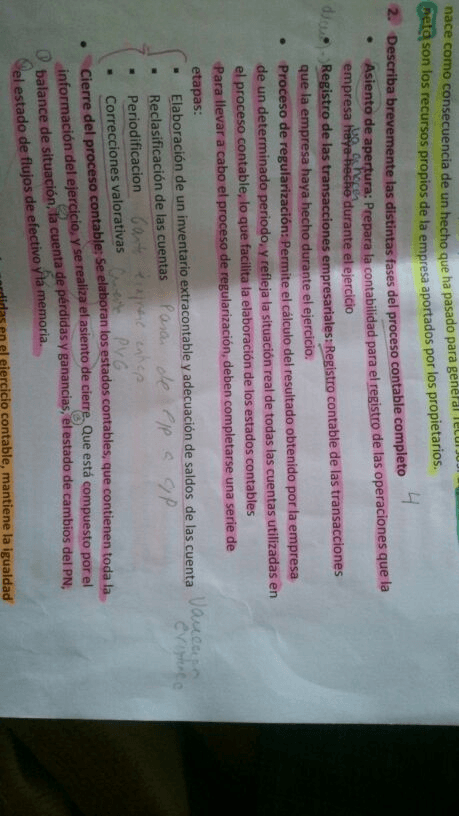 nace como consecuencia de un hecho que ha pasado para general
neto son los recursos propios de la empresa aportados por los propietarios.
2. Describa brevemente las distintas fases del proceso contable completo
4
• Asiento de apertura: Prepara la contabilidad para el registro de las operaciones que la
va a hacer
empresa haya hecho durante el ejercicio
• Registro de las transacciones empresariales: Registro contable de las transacciones
que la empresa haya hecho durante el ejercicio.
• Proceso de regularización: Permite el cálculo del resultado obtenido por la empresa
de un determinado periodo, y refleja la situación real de todas las cuentas utilizadas en
el proceso contable, lo que facilita la elaboración de los estados contables
Para llevar a cabo el proceso de regularización, deben completarse una serie de
etapas:
▪ Elaboración de un inventario extracontable y adecuación de saldos de las cuenta
▪ Reclasificación de las cuentas pasar de e/p a c/p
▪ Periodificacion
▪ Correcciones valorativas
• Cierre del proceso contable: Se elaboran los estados contables, que contienen toda la
información del ejercicio, y se realiza el asiento de cierre. Que está compuesto por el
balance de situación, la cuenta de pérdidas y ganancias, el estado de cambios del PN,
el estado de flujos de efectivo y la memoria.
en el ejercicio contable, mantiene la igualdad